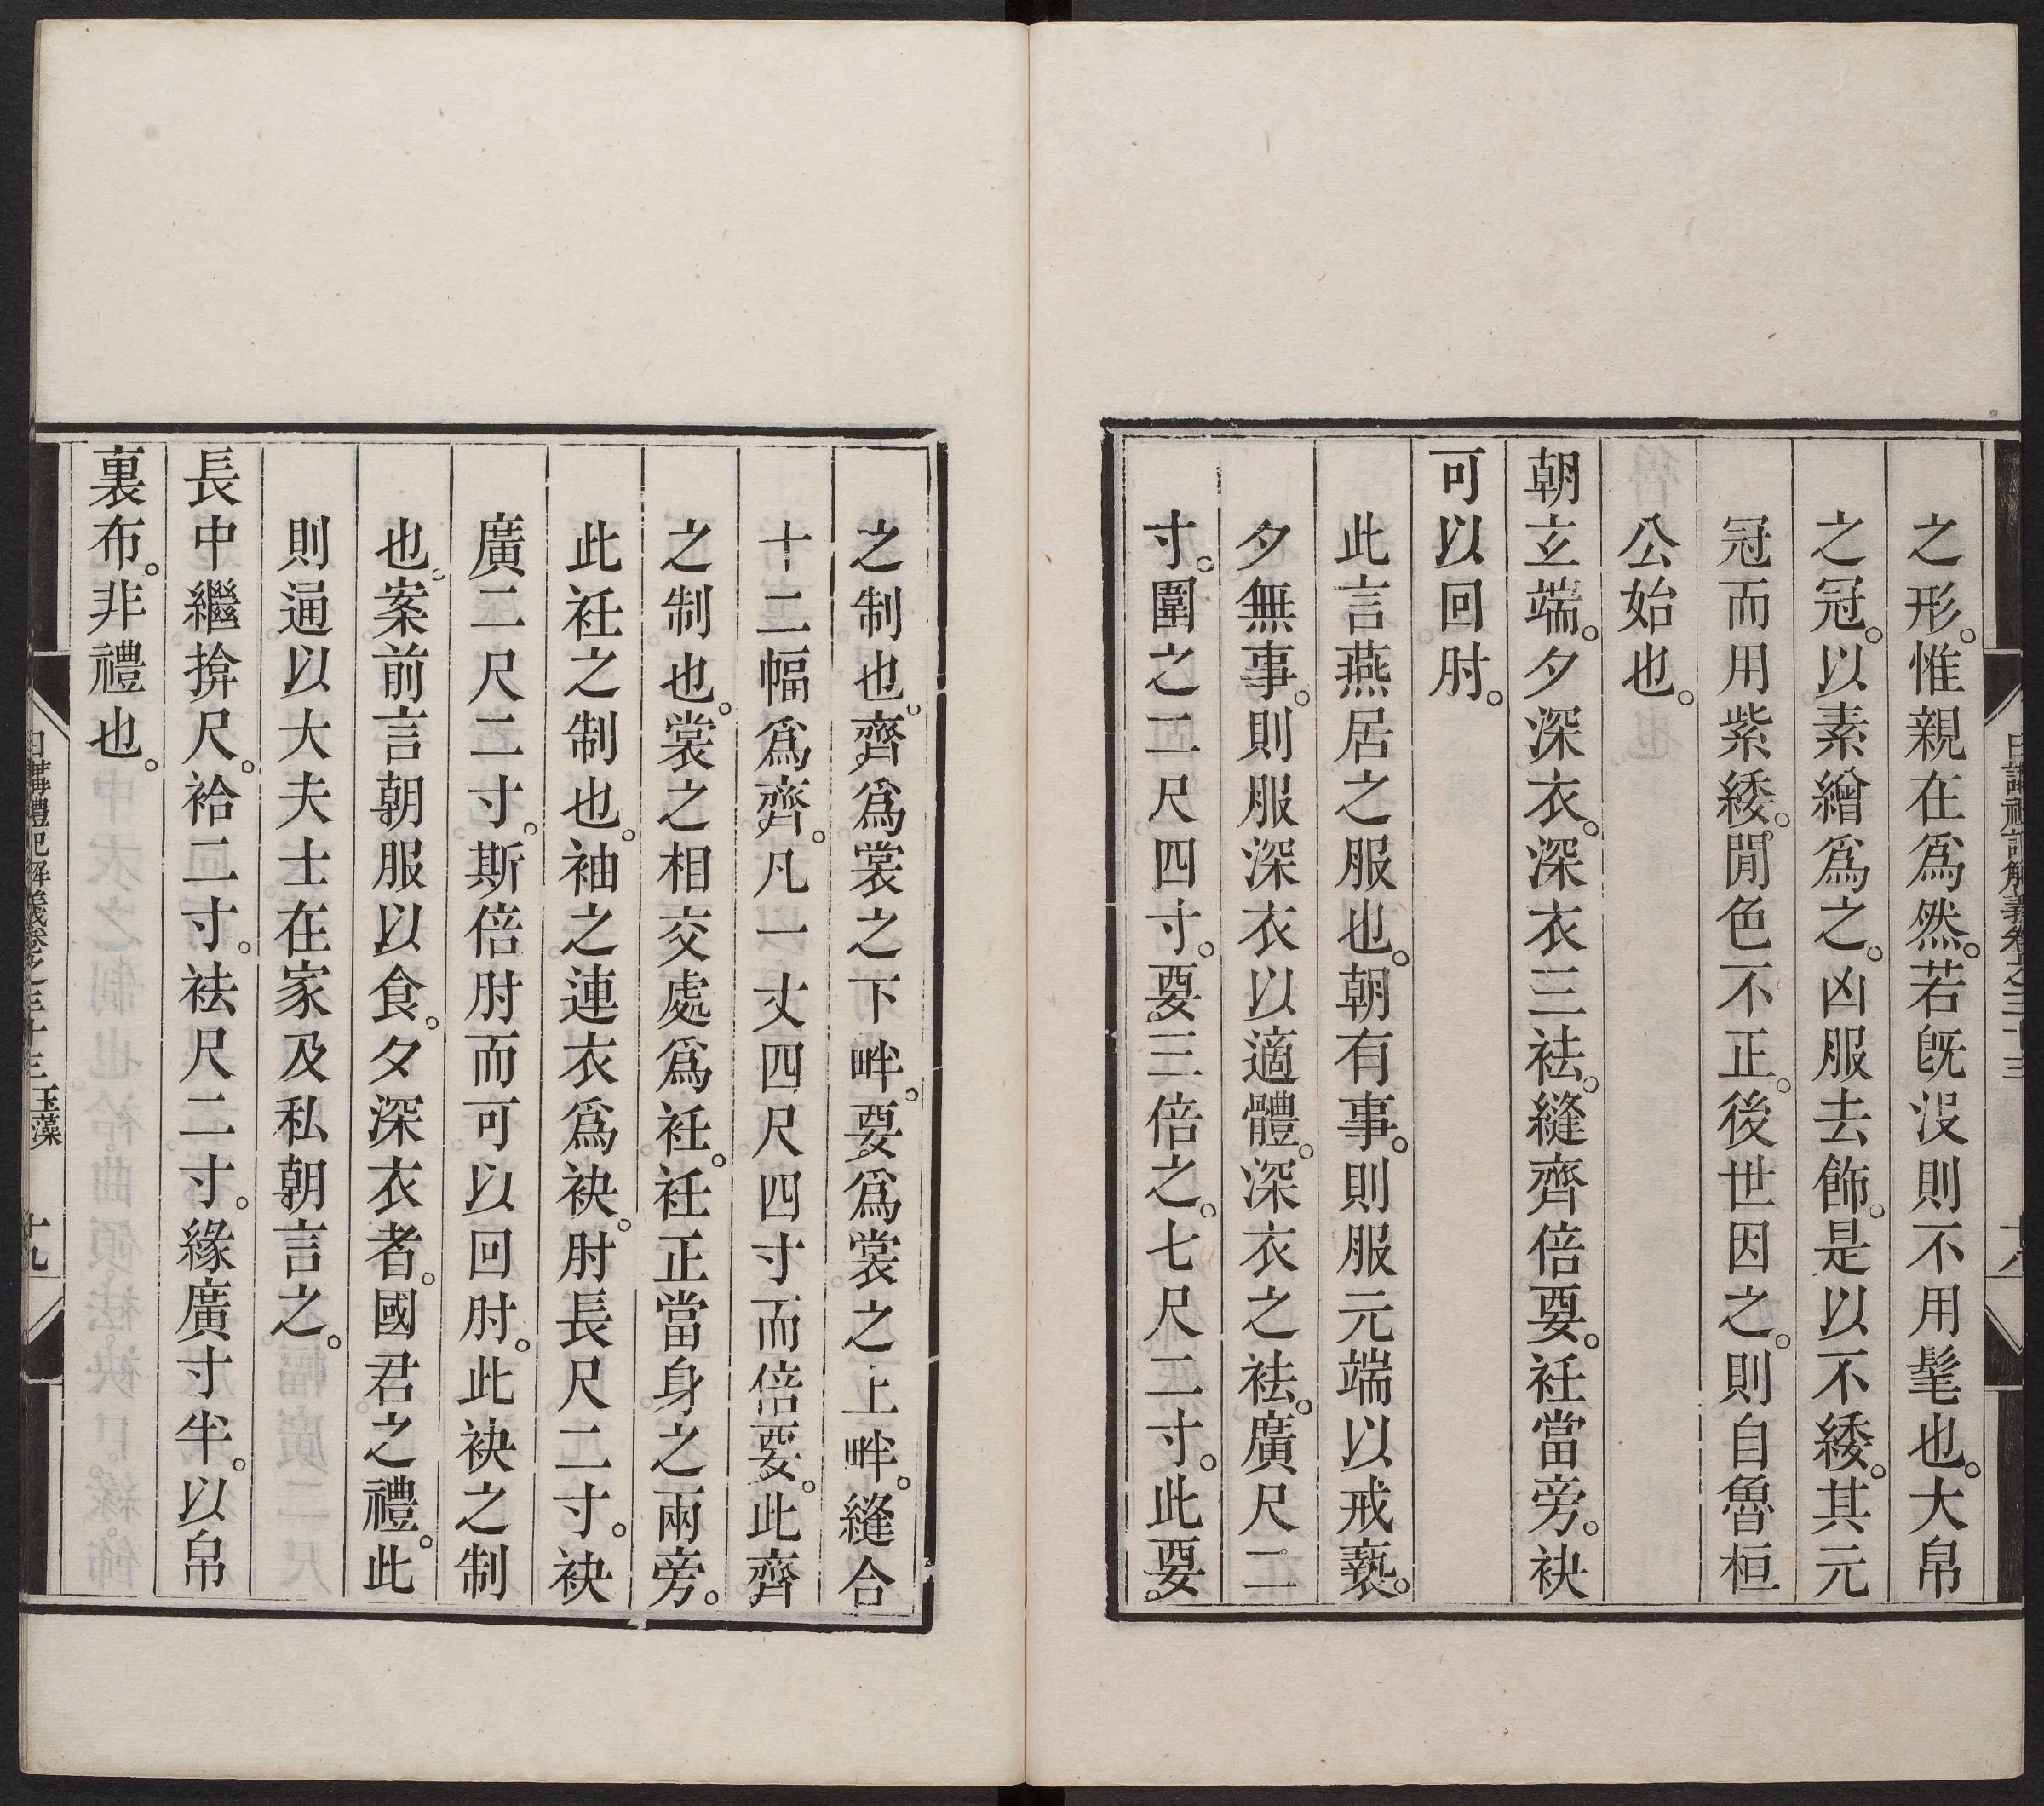 之形。惟親在爲然。若旣沒則不用髦也。大帛
之冠。以素繒爲之。凶服去飾。是以不緌。其元
冠而用紫緌。閒色不正。後世因之。則自魯桓
公始也。
朝玄端。夕深衣。深衣三袪。縫齊倍要。衽當旁。袂
可以回肘。
此言燕居之服也。朝有事。則服元端以戒褻。
夕無事。則服深衣以適體。深衣之袪。廣尺二
寸。圍之二尺四寸。要三倍之。七尺二寸。此要
之制也。齊爲裳之下畔。要爲裳之上畔。縫合
十二幅爲齊。凡一丈四尺四寸而倍要。此齊
之制也。裳之相交處爲衽。衽正當身之兩旁。
此衽之制也。袖之連衣爲袂。肘長尺二寸。袂
廣二尺二寸。斯倍肘而可以回肘。此袂之制
也。案前言朝服以食。夕深衣者。國君之禮。此
則通以大夫士在家及私朝言之。
長中繼揜尺。袷二寸。袪尺二寸。緣廣寸半。以帛
裏布。非禮也。
日講禮記解義卷之三十三 玉藻 十九